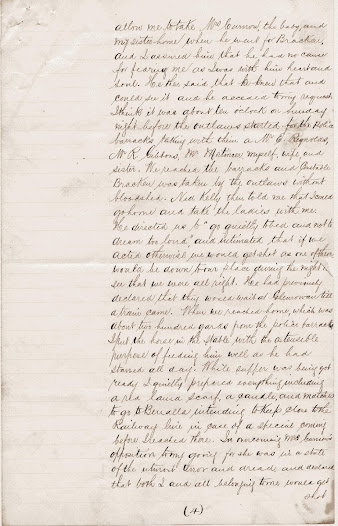 allow me to take Mrs Curnow, the baby and
my sister home when he went for Bracken,
and I assured him that he had no cause
for fearing me as I was with him heart and
soul. He then said that he knew that and
could see it and he acceded to my request.
I think it was about ten o'clock on Sunday
night before the outlaws started for the Police
barracks taking with them a Mr E. Reynolds,
Mr R. Gibbons, myself, wife and
sister. We reached the barracks and Constable
Bracken was taken by the outlaws without
bloodshed. Ned Kelly then told me that I could
go home and take the ladies with me.
He directed us to "go quietly to bed and not to
dream too loud," and intimated that if we
acted otherwise we would get shot as one of them
would be down to our place during the night to
see that we were all right. He had previously
declared that they would wait at Glenrowan till
a train came. When we reached home, which was
about two hundred yards from the police barracks
I put the horse in the stable with the ostensible
purpose of feeding him well as he had
starved all day. While supper was being got
ready I quietly prepared everything including
a red llama scarf, a candle, and matches
to go to Benalla intending to keep close to the
Railway line in case of a special coming
before I reached there. In overcoming Mrs Curnow's
opposition to my going, for she was in a state
of the utmost terror and dread, and declared
that both I and all belonging to me would get
shot
(4)